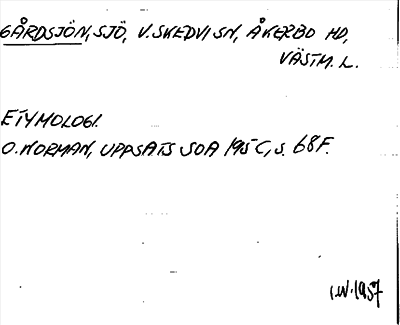 GÅRDSJÖN, SJÖ, V. SKEDVI SN, ÅKERBO HD,
VÄSTM. L.
ETYMOLOGI.
O. NORMAN, UPPSATS SOA 195C, S. 68F.
I.W. 1957